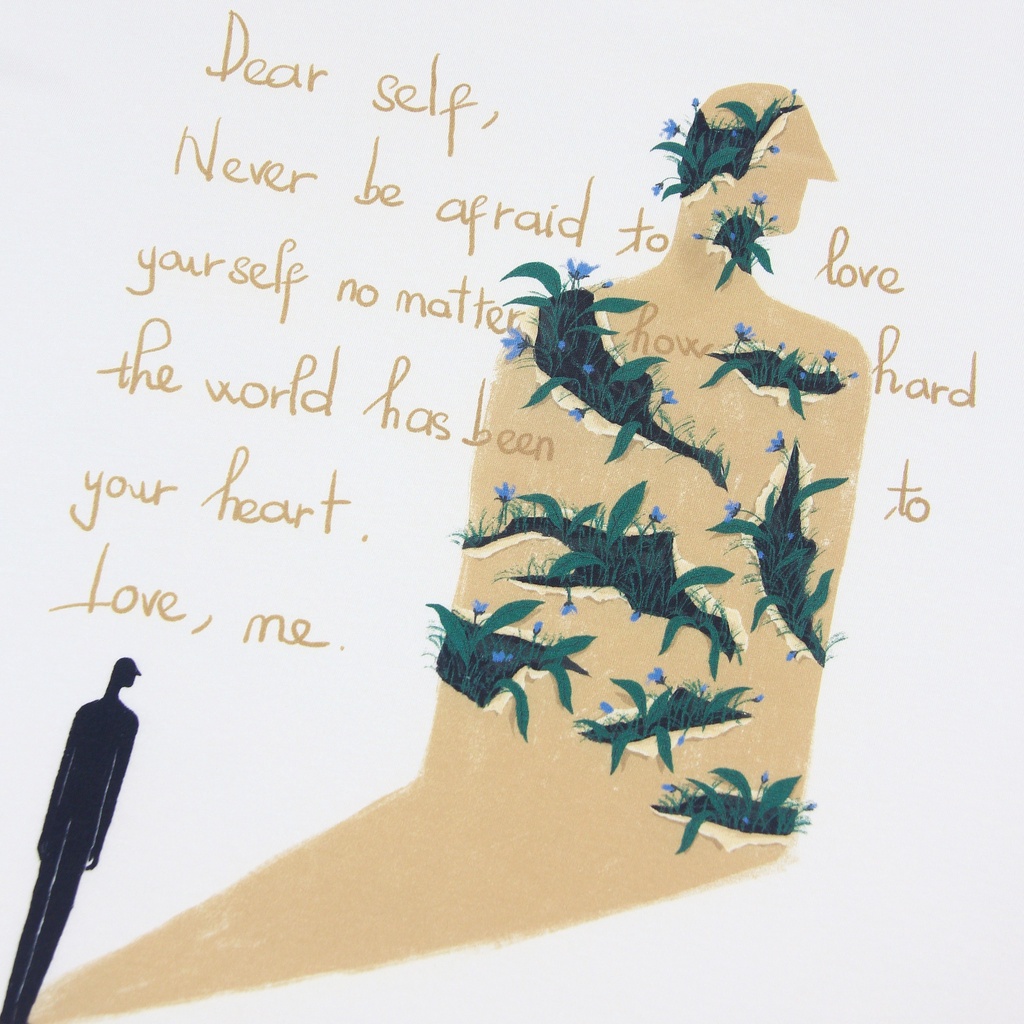 Dear self,
Never be afraid to love
yourself no matter how hard
the world has been to
your heart.
Love, me.